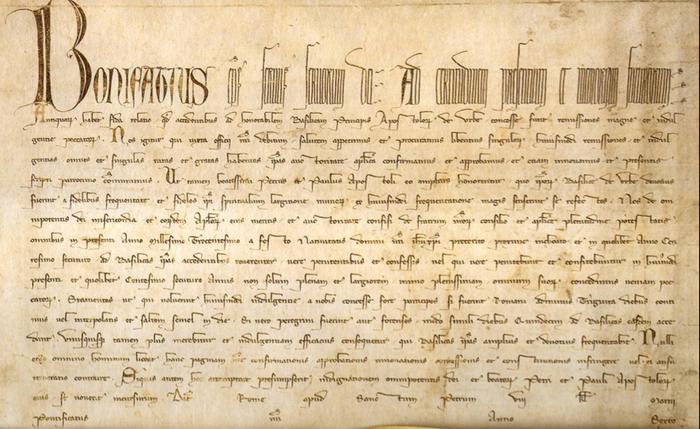 Bonifatius eps servus servorum dei. Ad certitudinem presentium et memoriam futurorum
Antiquorum habet fida relatio qd accedentibus ad honorabilem Basilicam Principis Apostolorum de Urbe concesse sunt remissiones magne et indul
gentie peccatorum. Nos igitur qui iuxta officii nri debitum salutem appetimus et procuramus libentius singulorum huiusmodi remissiones et indul
gentias omnes et singulas ratas et gratas habentes ipsas auctoritate aplica confirmamus et approbamus et etiam innovamus et presentis
scripti patrocinio communimus. Ut tamen beatissimi Petrus et Paulus Apostoli eo amplius honorentur quo ipsorum Basilice de Urbe devotius
fuerint a fidelibus frequentate et fideles ipsi spiritualium largitione munerum ex huiusmodi frequentatione magis senserint se refectos. Nos de om
nipotentis dei misericordia et eorundem Aplorum eius meritis et auctoritate confisi de fratrum nrorum consilio et aplice plenitudine potestatis
omnibus in presenti Anno Millesimo Trecentesimo a festo Nativitatis domini nri ihu xpi preterito proxime inchoato et in quolibet Anno Cen
tesimo secuturo ad Basilicas ipsas accedentibus reverenter vere penitentibus et confessis vel qui vere penitebunt et confitebuntur in huiusmodi
presenti et quolibet Centesimo secuturo Annis non solum plenam et largiorem immo plenissimam omnium suorum concedimus veniam pec
catorum. Statuentes ut qui voluerint huiusmodi indulgentie a nobis concesse fore participes si fuerint Romani ad minus Triginta diebus conti
nuis vel interpolatis et saltem semel in die. Si vero peregrini fuerint aut forenses modo simili diebus Quindecim ad Basilicas easdem acce
dant. Unusquisque tamen plus merebitur et indulgentiam efficacius consequetur qui Basilicas ipsas amplius et devotius frequentabit. Nulli
ergo omnino hominum liceat hanc paginam nre confirmationis approbationis innovationis concessionis et constitutionis infringere vel ei ausu
temerario contraire. Siquis autem hoc attemptare presumpserit indignationem omnipotentis dei et beatorum Petri et Pauli Apostolorum
eius se noverit incursurum. Dat Rome apud Sanctum Petrum viii kl Martii
Pontificatus nri Anno Sexto